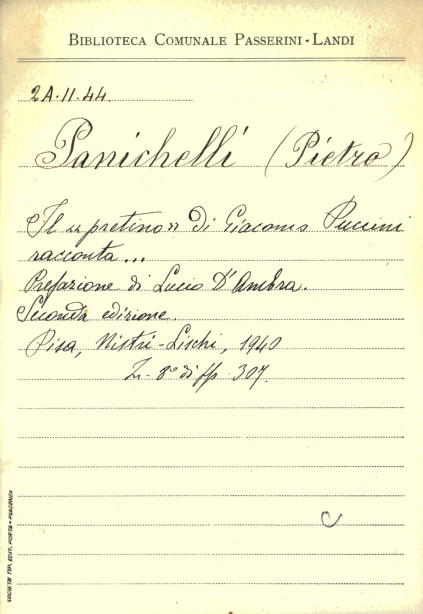 BIBLIOTECA COMUNALE PASSERINI-LANDI
2A.II.44.
Panichelli (Pietro)
Il «pretino» di Giacomo Puccini
racconta...
Prefazione di Lucio D'Ambra.
Seconda edizione.
Pisa, Nistri-Lischi, 1940
In-8° di pp. 307.
C
SOCIETÀ TIP. EDIT. PORTA - PIACENZA